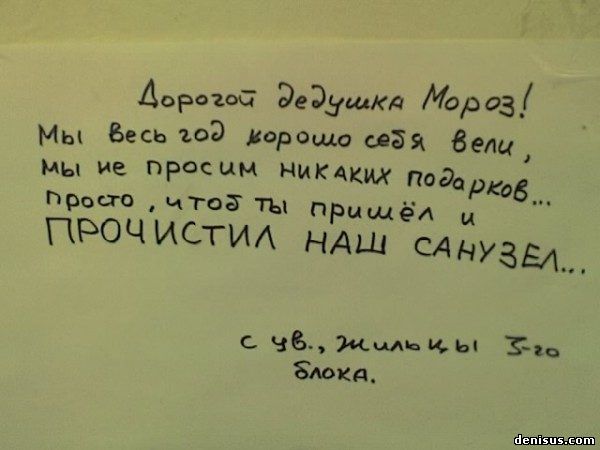 Дорогой дедушка Мороз!
Мы весь год хорошо себя вели,
мы не просим никаких подарков...
просто, чтоб ты пришёл и
ПРОЧИСТИЛ НАШ САНУЗЕЛ...
с ув., жильцы 3-го
блока.
denisus.com